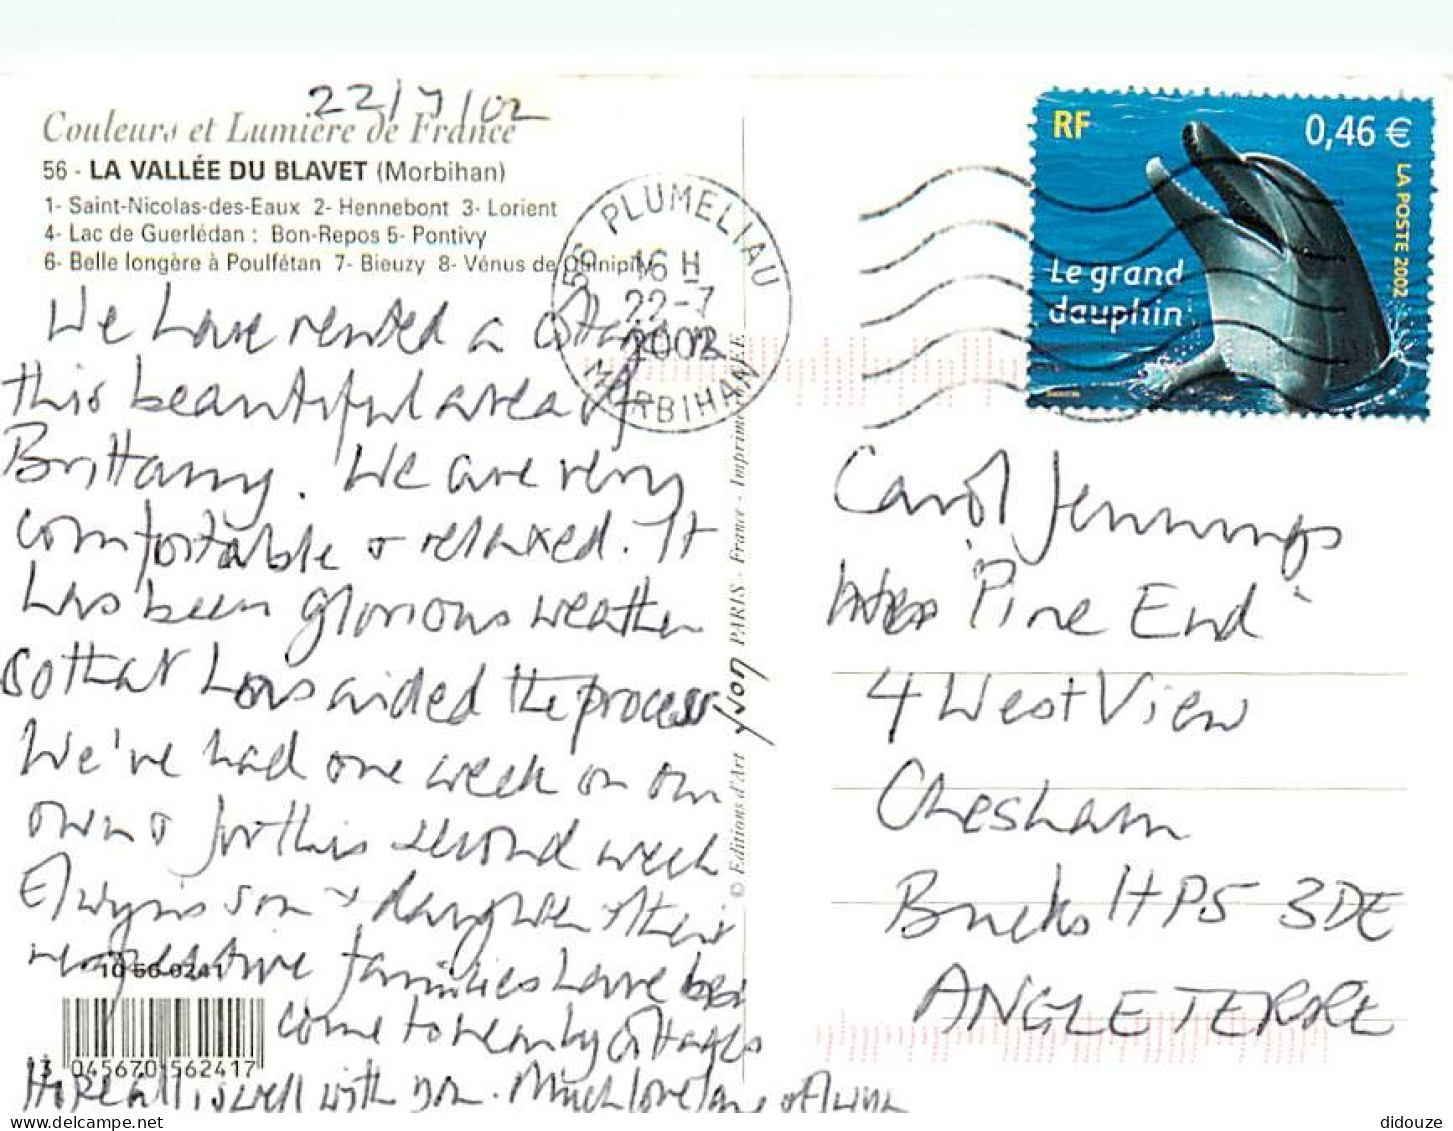 22/7/02
Couleurs et Lumière de France
56 - LA VALLÉE DU BLAVET (Morbihan)
1- Saint-Nicolas-des-Eaux 2- Hennebont 3- Lorient
4- Lac de Guerlédan : Bon-Repos 5- Pontivy
6- Belle longère à Poulfétan 7- Bieuzy 8- Vénus de Quinipily
We have rented a cottage in
this beautiful area of
Brittany. We are very
comfortable & relaxed. It
has been glorious weather
so that has aided the process
We've had one week on our
own & for this second week
Elwyn's son & daughter & their
respective families have
come to nearby cottages
Hope all is well with you. Much love & Elwyn
10 56 0241
13 045670 562417
© Editions d'Art yvon PARIS - France - Imprimé EE
56 PLUMELIAU
16 H
22-7
2002
MORBIHAN
RF
0,46 €
LA POSTE 2002
Le grand
dauphin
Carol Jennings
'Pine End'
4 West View
Chesham
Bucks HP5 3DE
ANGLETERRE
didouze